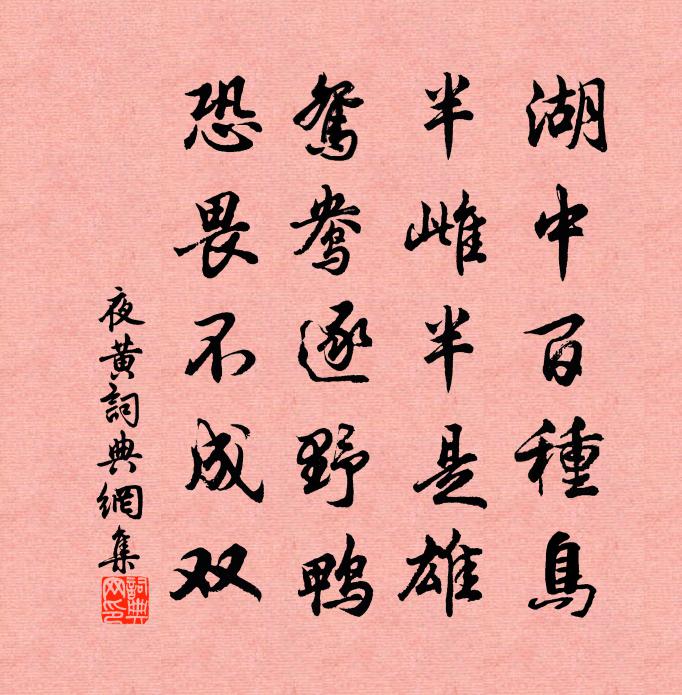 湖中百種鳥
半雌半是雄
鴛鴦逐野鴨
恐畏不成双
夜黃詞典網集
詞典網印